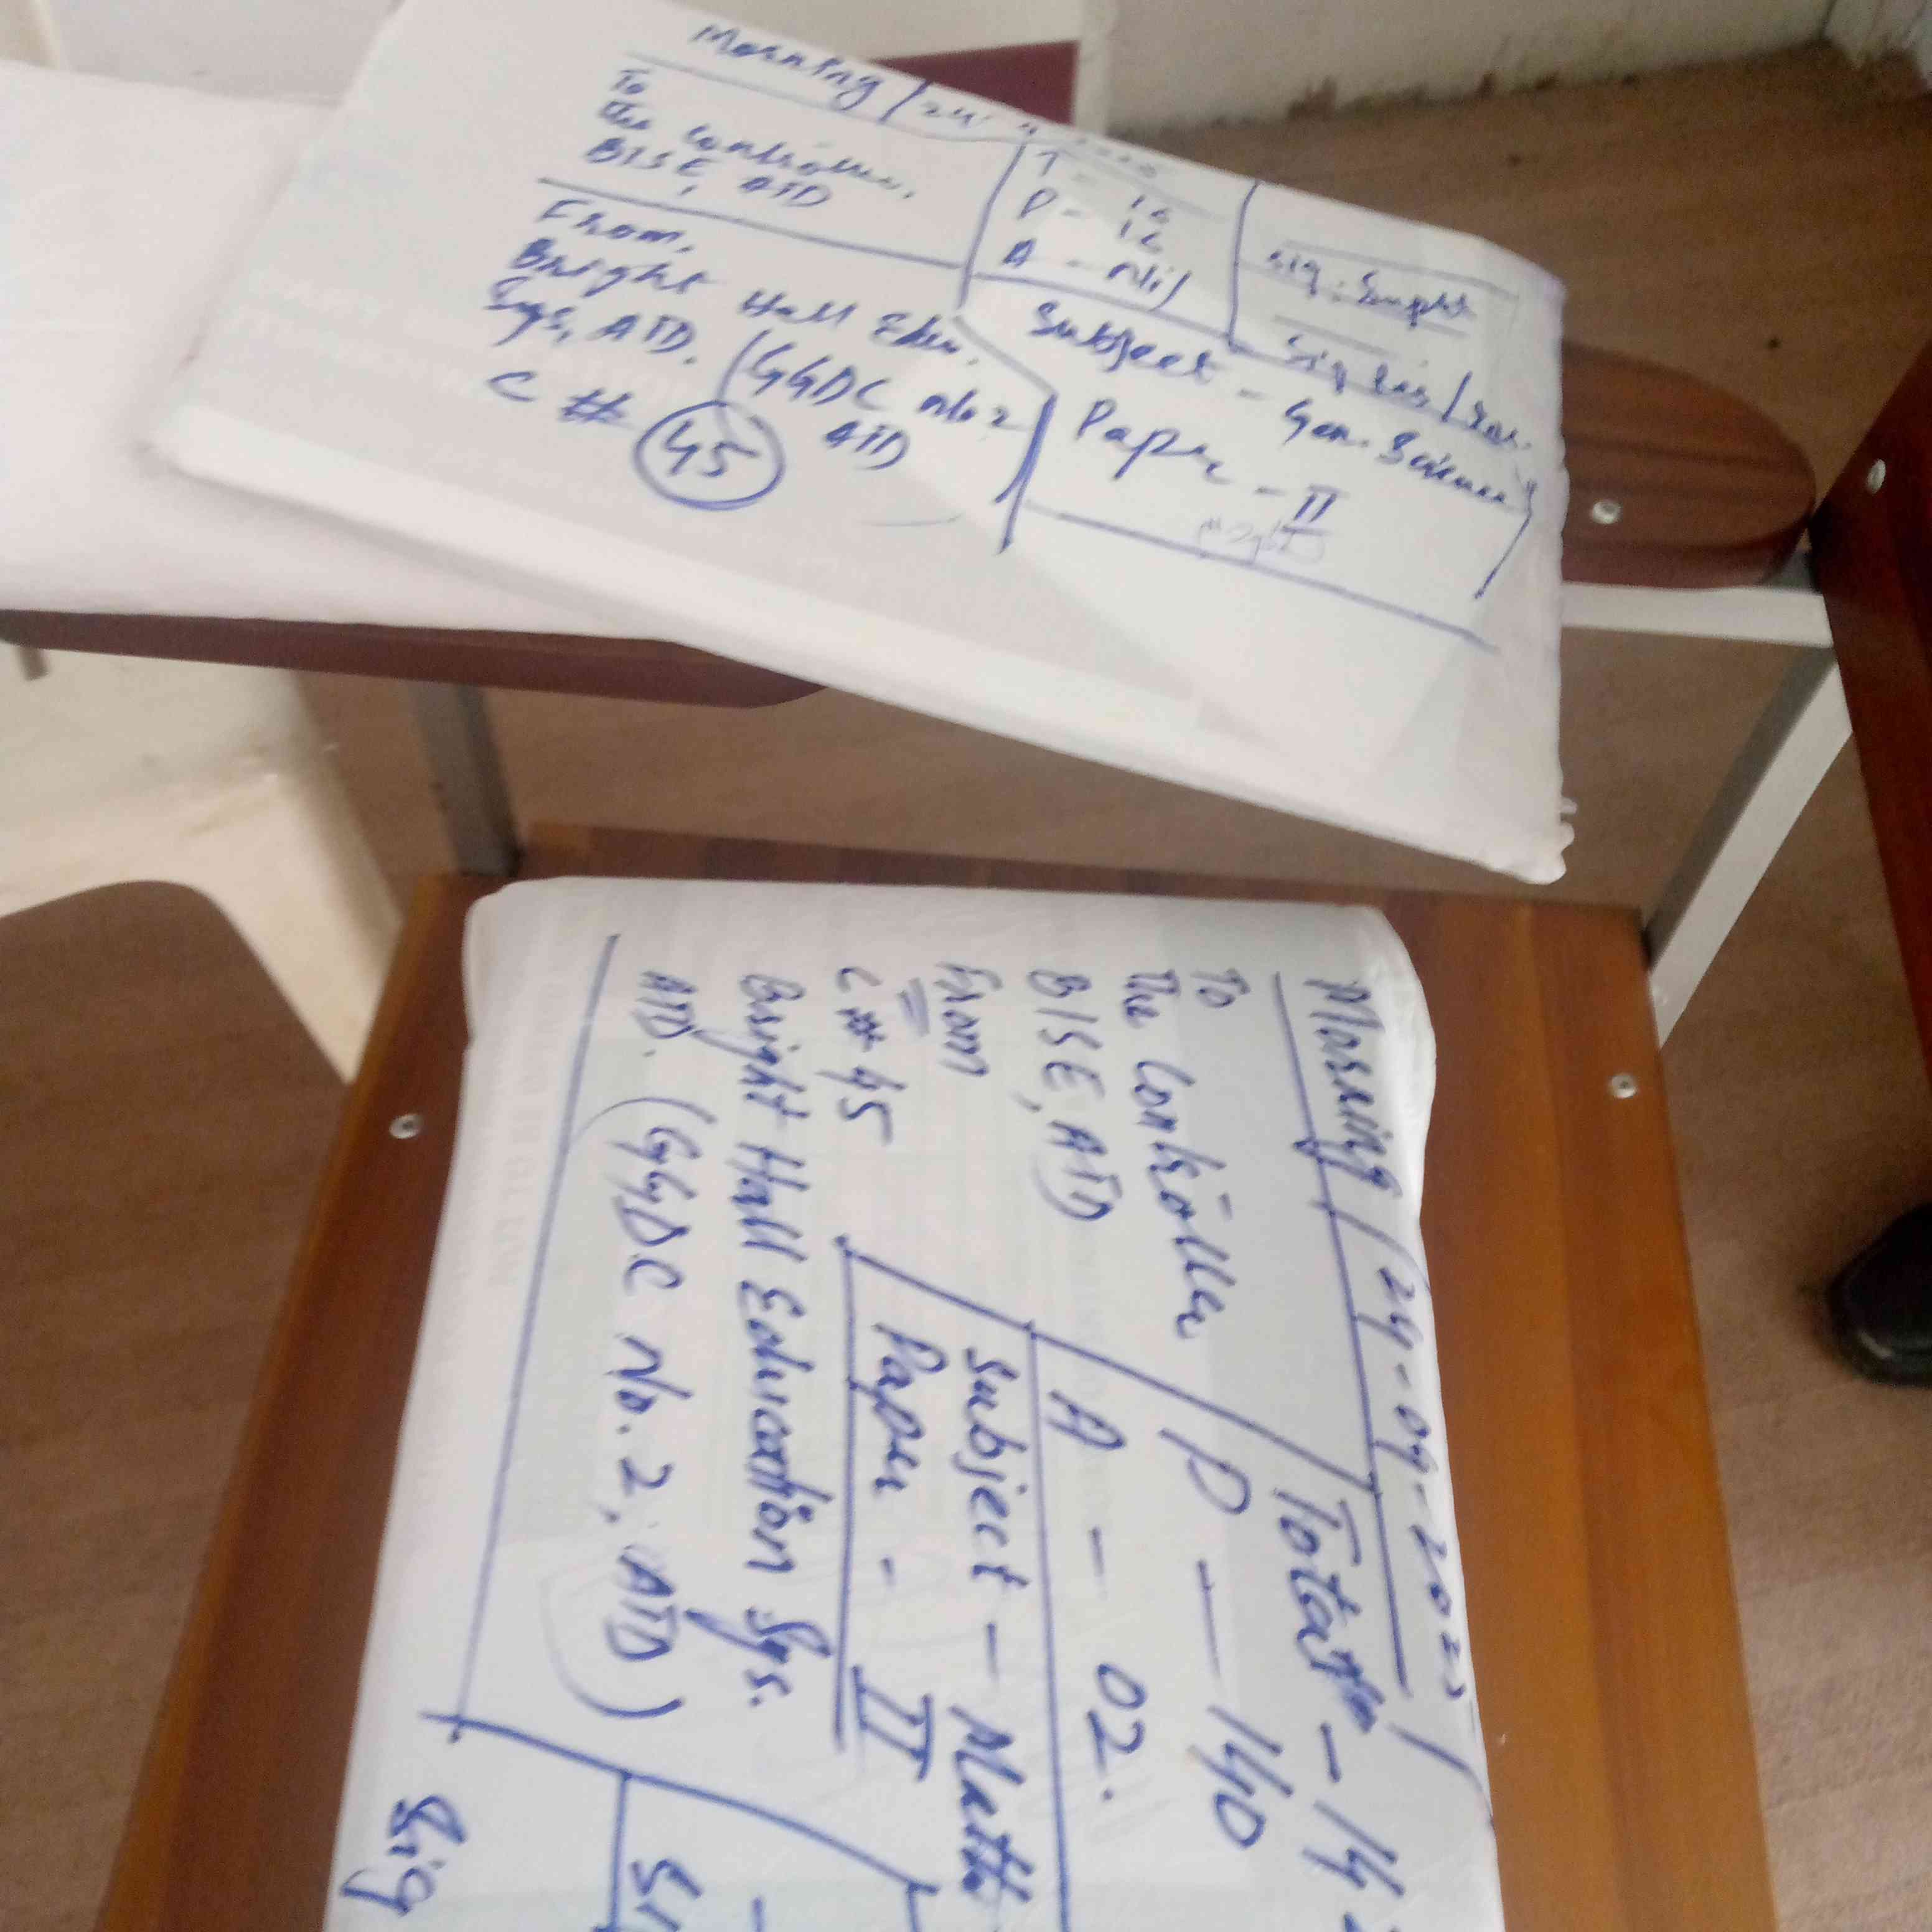 Morning / 24
To
The Controller,
BISE, ATD
T -
P - 16
A - Nil
Sig: Supdt
From,
Bright Hall Edu.
Sys, ATD.
(GGDC No 2
ATD
C # 45
Subject - Gen. Science
Paper - II
Morning / 24-09-202
To
The Controller
BISE, ATD
From
C # 45
Bright Hall Education Sys.
ATD. (GGDC No. 2, ATD)
Total - 14
P - 140
A - 02.
Subject - Math
Paper - II
Sig